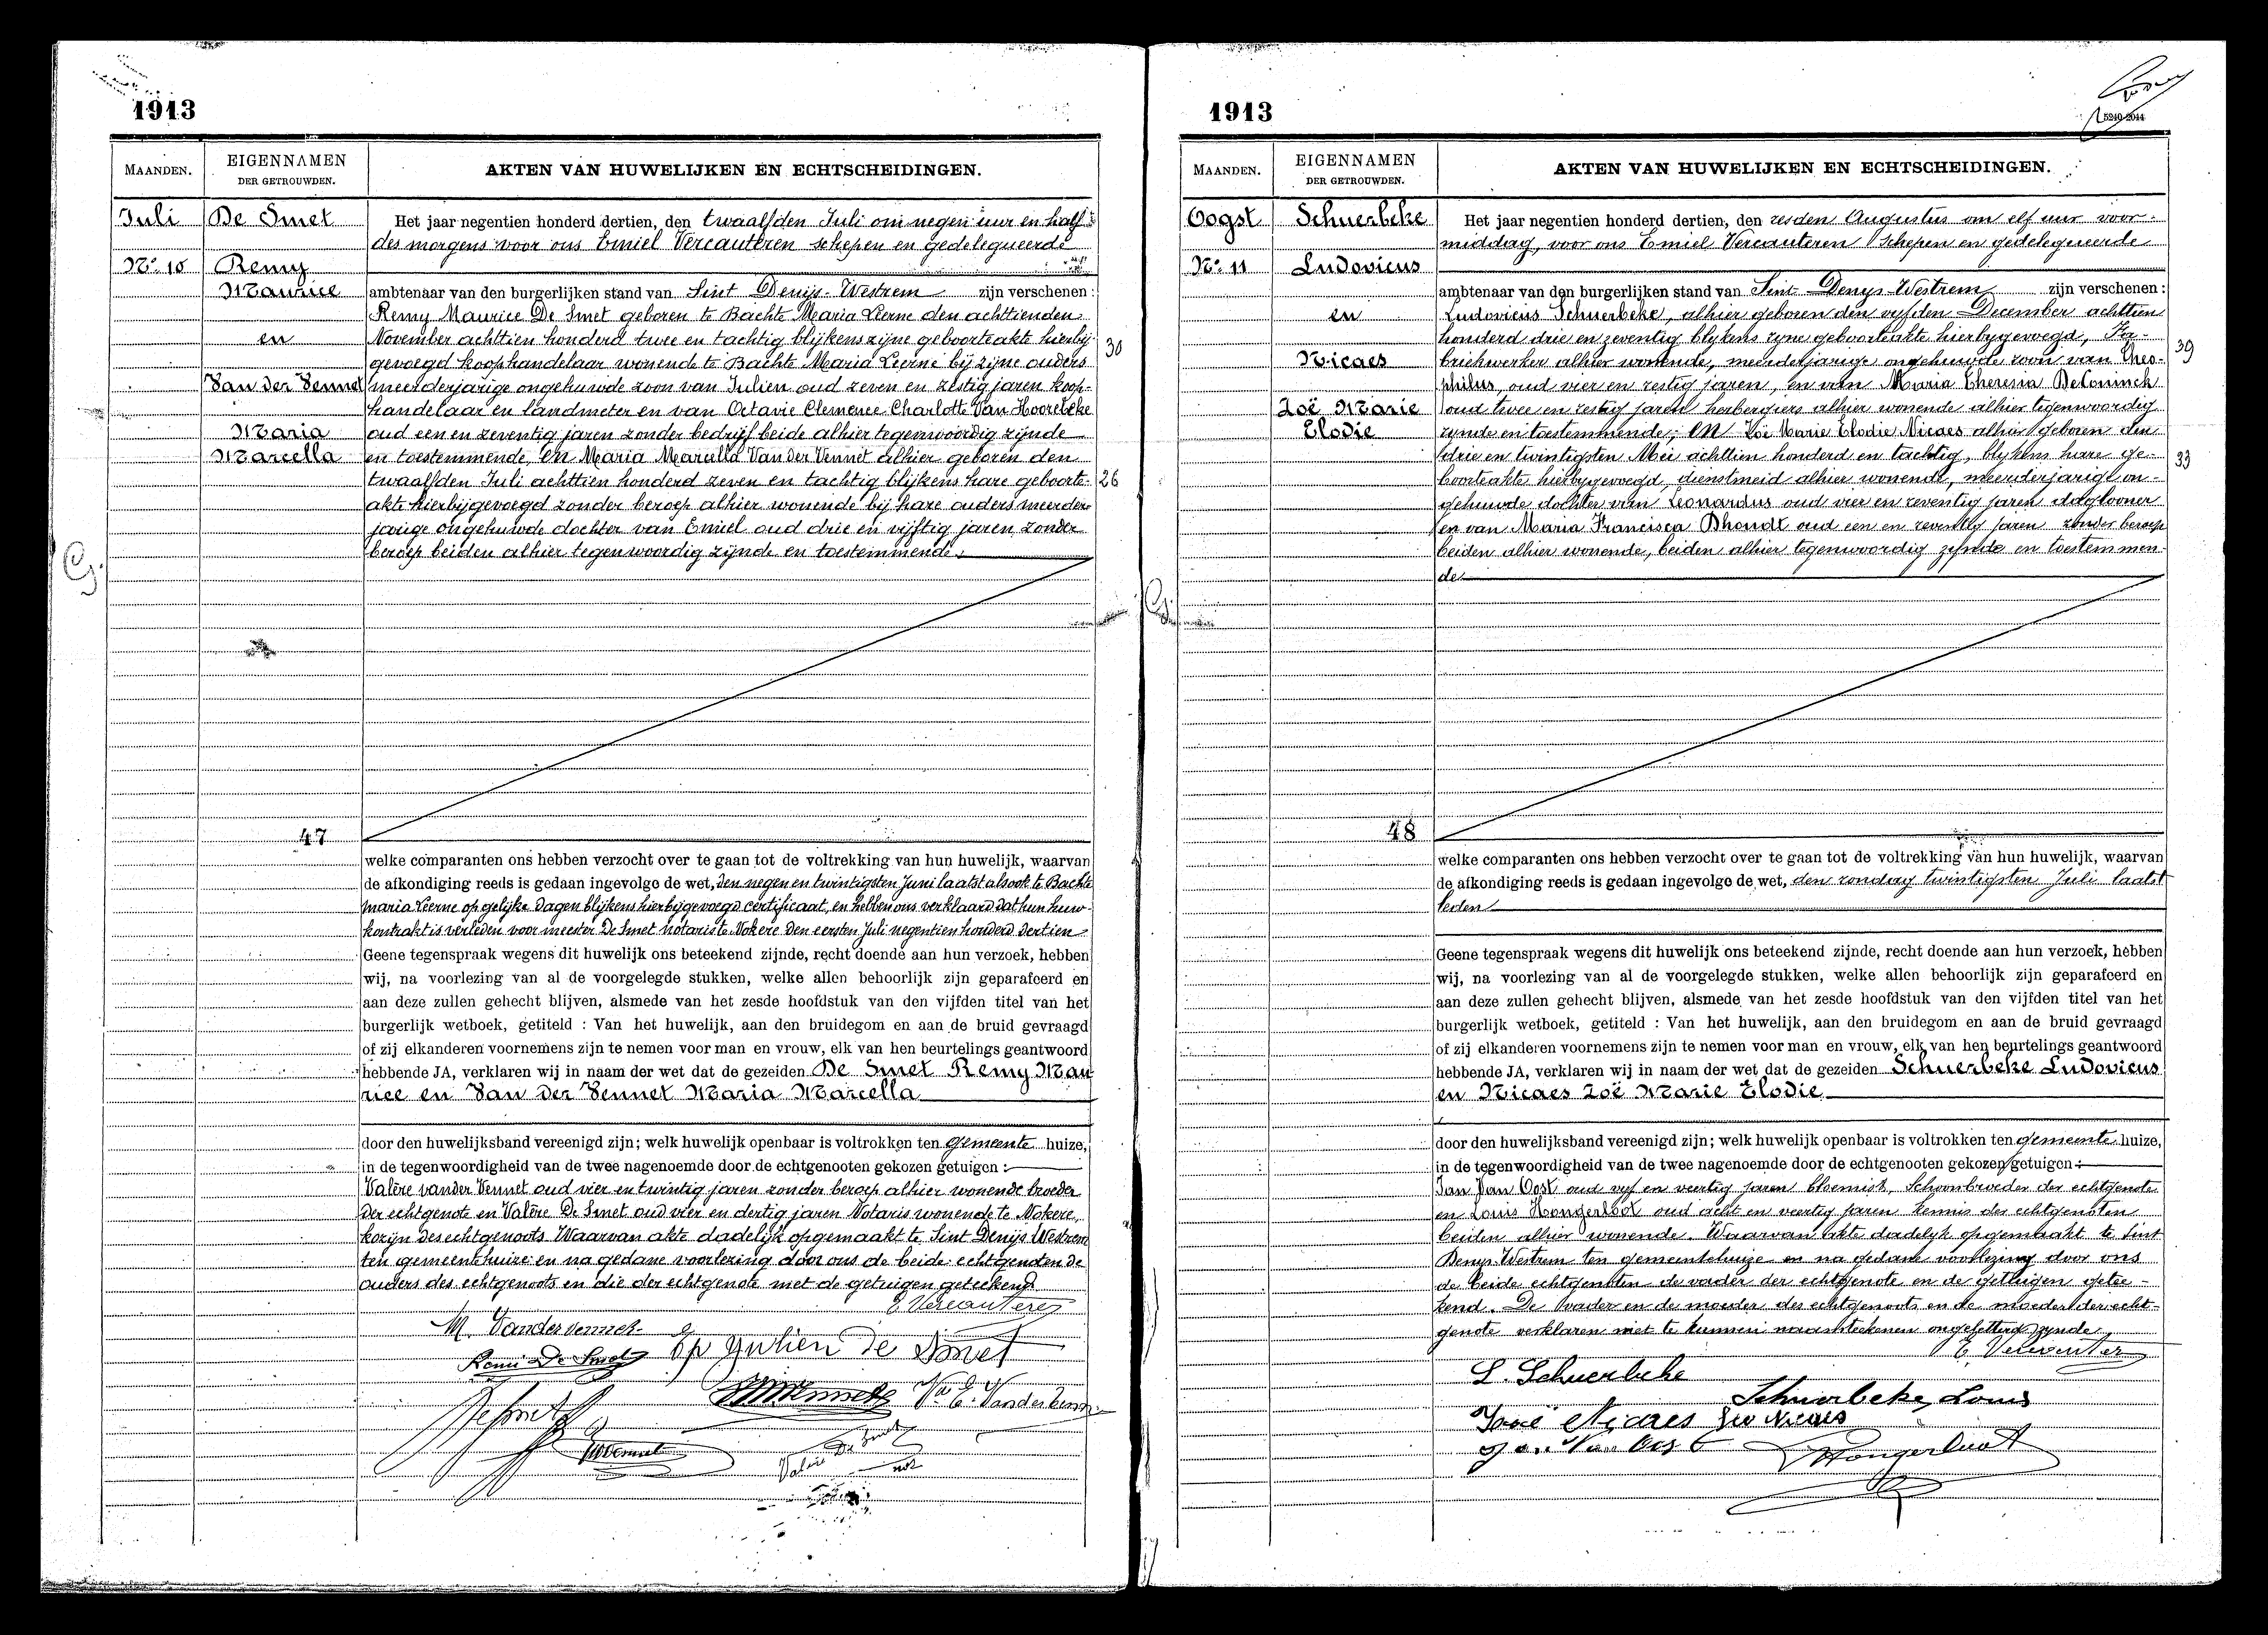 1913
MAANDEN.
EIGENNAMEN
DER GETROUWDEN.
AKTEN VAN HUWELIJKEN EN ECHTSCHEIDINGEN.
Juli
De Smet
No. 10
Remy
Maurice
en
Van der Vennet
Maria
Marcella
47
Het jaar negentien honderd dertien, den twaalfden Juli om negen uur en half
des morgens voor ons Emiel Vercauteren schepen en gedelegueerde
ambtenaar van den burgerlijken stand van Sint Denijs-Westrem zijn verschenen:
Remy Maurice De Smet geboren te Bachte Maria Leerne den achttienden
November achttien honderd twee en tachtig blijkens zijne geboorteakte hierbij
gevoegd koophandelaar wonende te Bachte Maria Leerne bij zijne ouders
30
meerderjarige ongehuwde zoon van Julien oud zeven en zestig jaren koop-
handelaar en landmeter en van Octavie Clemence Charlotte Van Hoorebeke
oud een en zeventig jaren zonder bedrijf beide alhier tegenwoordig zijnde
en toestemmende, en Maria Marcella Van der Vennet alhier geboren den
twaalfden Juli achttien honderd zeven en tachtig blijkens hare geboorte-
26
akte hierbijgevoegd zonder beroep alhier wonende bij hare ouders meerder-
jarige ongehuwde dochter van Emiel oud drie en vijftig jaren zonder
beroep beiden alhier tegenwoordig zijnde en toestemmende.
welke comparanten ons hebben verzocht over te gaan tot de voltrekking van hun huwelijk, waarvan
de afkondiging reeds is gedaan ingevolge de wet, den negen en twintigsten Juni laatst alsook te Bachte
Maria Leerne op gelijke dagen blijkens hierbijgevoegd certificaat, en hebben ons verklaard dat hun huw-
kontrakt is verleden voor meester De Smet notaris te Nokere den eersten Juli negentien honderd dertien
Geene tegenspraak wegens dit huwelijk ons beteekend zijnde, recht doende aan hun verzoek, hebben
wij, na voorlezing van al de voorgelegde stukken, welke allen behoorlijk zijn geparafeerd en
aan deze zullen gehecht blijven, alsmede van het zesde hoofdstuk van den vijfden titel van het
burgerlijk wetboek, getiteld : Van het huwelijk, aan den bruidegom en aan de bruid gevraagd
of zij elkanderen voornemens zijn te nemen voor man en vrouw, elk van hen beurtelings geantwoord
hebbende JA, verklaren wij in naam der wet dat de gezeiden De Smet Remy Mau
rice en Van der Vennet Maria Marcella
door den huwelijksband vereenigd zijn; welk huwelijk openbaar is voltrokken ten gemeente huize,
in de tegenwoordigheid van de twee nagenoemde door de echtgenooten gekozen getuigen :
Valère vander Vennet oud vier en twintig jaren zonder beroep alhier wonende broeder
der echtgenote en Valère De Smet oud vier en dertig jaren Notaris wonende te Nokere,
kozijn des echtgenoots. Waarvan akte dadelijk opgemaakt te Sint Denijs Westrem
ten gemeentehuize en na gedane voorlezing door ons de beide echtgenoten de
ouders des echtgenoots en die der echtgenote met de getuigen geteekend
E. Vercauteren
M. Vandervennet
Remi De Smet
Julien De Smet
E. Vandervennet
Valère De Smet
not
1913
5240-2044
MAANDEN.
EIGENNAMEN
DER GETROUWDEN.
AKTEN VAN HUWELIJKEN EN ECHTSCHEIDINGEN.
Oogst
Schuerbeke
No. 11
Ludovicus
en
Nicaes
Zoë Marie
Elodie
48
Het jaar negentien honderd dertien, den zesden Augustus om elf uur voor-
middag, voor ons Emiel Vercauteren schepen en gedelegueerde
ambtenaar van den burgerlijken stand van Sint-Denys-Westrem zijn verschenen:
Ludovicus Schuerbeke, alhier geboren den vyfden December achttien
honderd drie en zeventig blykens zyne geboorteakte hierbygevoegd, Fa-
briekwerker alhier wonende, meerderjarige ongehuwde zoon van Theo-
39
philus, oud vier en zestig jaren, en van Maria Theresia DeConinck
oud twee en zestig jaren herbergiers alhier wonende alhier tegenwoordig
zynde en toestemmende; en Zoë Marie Elodie Nicaes alhier geboren den
drie en twintigsten Mei achttien honderd en tachtig, blykens hare ge-
33
boorteakte hierbygevoegd, dienstmeid alhier wonende, meerderjarige on-
gehuwde dochter van Leonardus oud vier en zeventig jaren daglooner
en van Maria Francisca Dhondt oud een en zeventig jaren zonder beroep
beiden alhier wonende, beiden alhier tegenwoordig zynde en toestemmen-
de
welke comparanten ons hebben verzocht over te gaan tot de voltrekking van hun huwelijk, waarvan
de afkondiging reeds is gedaan ingevolge de wet, den zondag twintigsten Juli laatst
leden
Geene tegenspraak wegens dit huwelijk ons beteekend zijnde, recht doende aan hun verzoek, hebben
wij, na voorlezing van al de voorgelegde stukken, welke allen behoorlijk zijn geparafeerd en
aan deze zullen gehecht blijven, alsmede van het zesde hoofdstuk van den vijfden titel van het
burgerlijk wetboek, getiteld : Van het huwelijk, aan den bruidegom en aan de bruid gevraagd
of zij elkanderen voornemens zijn te nemen voor man en vrouw, elk van hen beurtelings geantwoord
hebbende JA, verklaren wij in naam der wet dat de gezeiden Schuerbeke Ludovicus
en Nicaes Zoë Marie Elodie
door den huwelijksband vereenigd zijn; welk huwelijk openbaar is voltrokken ten gemeente huize,
in de tegenwoordigheid van de twee nagenoemde door de echtgenooten gekozen getuigen :
Jan Van Oost oud vyf en veertig jaren bloemist, Schoonbroeder der echtgenote
en Louis Hongerloot oud acht en veertig jaren kennis des echtgenoten
beiden alhier wonende. Waarvan akte dadelyk opgemaakt te Sint
Denys Westrem ten gemeentehuize en na gedane voorlezing door ons
de beide echtgenoten de vader der echtgenote en de getuigen getee-
kend. De vader en de moeder des echtgenoots en de moeder der echt-
genote verklaren niet te kunnen naamteekenen ongeletterd zynde
E. Vercauteren
L. Schuerbeke
Schuerbeke Louis
Zoë Nicaes Leo Nicaes
Jan Van Oost
Hongerloot